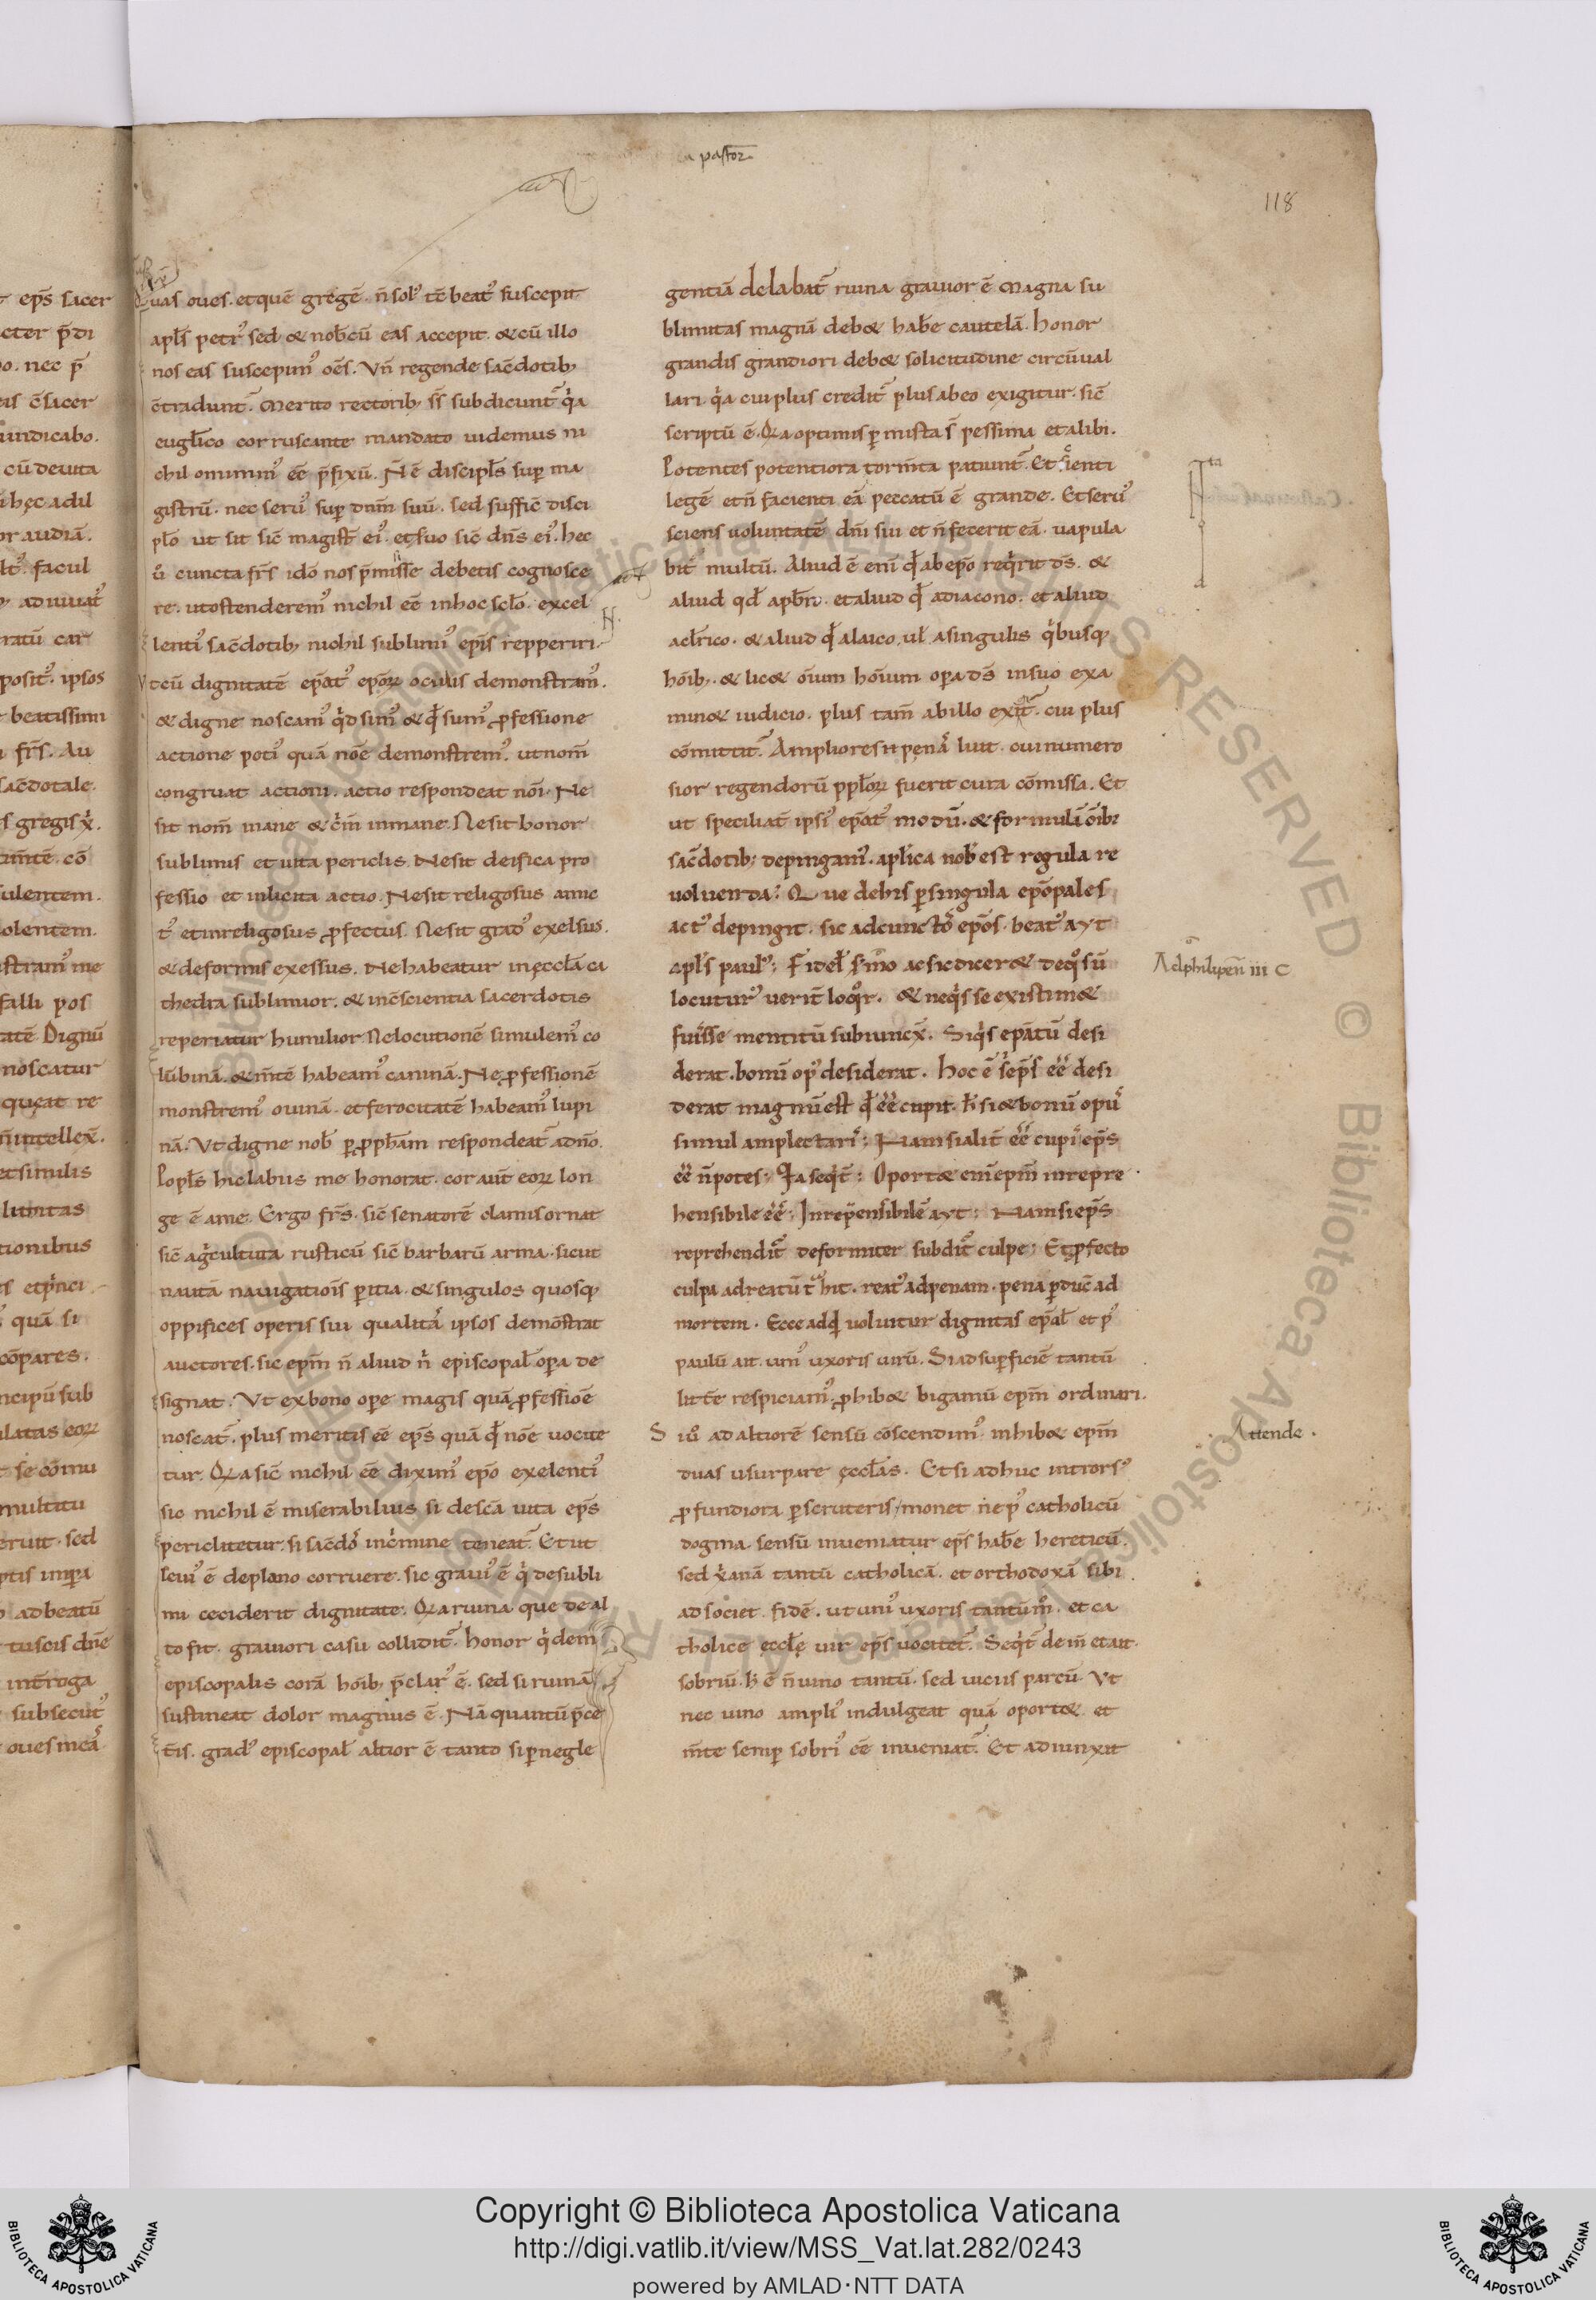 a pastor
118
uas oues. et quē gregē. n̄ sol' tē beat' suscepit
apl̄s petr' sed & nob̄cū eas accepit. & cū illo
nos eas suscepim' om̄s. Vn̄ regende sac̄dotib;
c̄tradunt~. Merito rectorib; s̄s subdicunt~ q̇a
euglīco corruscante mandato uidemus ni
chil omnium' eē p̄fixū. N̄ ē discipl̄s sup̱ ma
gistrū. nec seru' sup̱ dnm̄ suū. sed suffic̄ disci
pl̄o ut sit sic̄ magist̄ ei'. et suo sic̄ dn̄s ei'. hec
u̇ cuncta fr̄s ido nos p̄misse debetis cognosce
re. ut ostenderem' nichil eē in hoc sc̄lo. excel
lenti' sac̄dotib; nichil sublimi' ep̄is repperiri.
tcū dignitatē ep̄at' ep̄oꝝ oculis demonstram'.
& digne noscam' q̇d sim' & qđ sum' ꝓfessione
actione poti' quā nōe demonstrem'. ut nom̄
congruat actioni. actio respondeat nōi. Ne
sit nom̄ inane & c̄m̄ inmane. Ne sit honor
sublimis et uita periclis. Ne sit deifica pro
fessio et inlicita actio. Ne sit religosus amic
t' et inreligosus ꝓfectus. Ne sit grad' exelsus.
& deformis exessus. Ne habeatur in ęccl̄a ca
thedra sublimior. & in c̄scientia sacerdotis
reperiatur humilior Ne locutionē simulem' co
lūbinā. & m̄tē habeam' caninā. Ne ꝓfessionē
monstrem' ouinā. et ferocitatē habeam' lupi
nā. Vt digne nob̄ p̱ ꝓph̄am respondeat~ a dn̄o.
Popl̄s hic labus me honorat. cor aut̄ eoꝝ lon
ge ē a me. Ergo fr̄s. sic̄ senatorē clamis ornat
sic̄ ag̓cultura rusticū sic̄ barbarū arma. sicut
nautā nauigatiōis p̱itia. & singulos quosq;
oppifices operis sui qualita' ipsos demōstrat
auctores. sic ep̄m n̄ aliud n̓ episcopal̄ op̱a de
signat. Vt ex bono op̱e magis quā ꝓfessiōe
noscat~. plus meritis eē ep̄s quā qđ nōe uocite
tur. Q̇a sic̄ nichil eē dixim' ep̄o exelenti'
sic nichil ē miserabilius si descā uita ep̄s
periclitetur. si sac̄do' in c̓mine teneat~. Et ut
leui' ē de plano corruere. sic graui' ē q̇ de subli
mi ceciderit dignitate. Q̇a ruina que de al
to fit. grauiori casu collidit~. honor q̇dem
episcopalis corā hōib; p̄clar' ē. sed si ruinā
sustineat dolor magnus ē. Nā quantū p̄ce
t̄is. grad' episcopal̄ altior ē tanto si p̱ negle
gentiā delabat~ ruina grauior ē Magna su
blimitas magnā deb& hab̄e cautelā. honor
grandis grandiori deb& solicitudine circūual
lari q̇a cui plus credit~ plus ab eo exigitur. sic̄
scriptū ē. Q̇a optimis p̱mista s̄ pessima et alibi.
Potentes potentiora torm̄ta patiunt~. Et scienti
legē et n̄ facienti eā peccatū ē grande. Et seru'
sciens uoluntatē dn̄i sui et n̄ fecerit eā. uapula
bit~ multū. Aliud ē enī qđ ab ep̄o req̇rit d̄s. &
aliud qđ a pb̄ro. et aliud qđ a diacono. et aliud
a cl̄rico. & aliud qđ a laico, ul̄ a singulis q̇busq;
hōib;. & lic& oīum hōium op̱a d̄s in suo exa
min& iudicio. plus tam̄ ab illo exit~. cui plus
cōmittit~. Ampliores n̄ penā luit. cui numero
sior regendorū ppl̄oꝝ fuerit cura cōmissa. Et
ut speciliat̄ ipsi' ep̄at' modū. & formulā ōib;
sac̄dotib; depingam'. apl̄ica nob̄ est regula re
uoluenda: Que de his p̱ singula ep̄opales
act' depingit. sic ad cuncto' ep̄os. beat' ayt
apl̄s paul': Fidel̄ s̄mo ac si dicer& de q̊ sū
locutur' uerit̄ loq̊r. & neq̇s se existim&
fuisse mentitū subiuncx̄. Siq̇s ep̄atū desi
derat. bonū op' desiderat. hoc ē si ep̄s eē desi
derat magnū est qđ eē cupit. h̄ si & bonū opu'
simul amplectari': Nam si alit̄ eē cupi' ep̄s
eē n̄ potes: Q̇a seq̇t~: Oport& enī ep̄m inrepre
hensibile eē: Inrep̄ensibilē ayt: Nam si ep̄s
reprehendit~ deformiter subdit~ culpe: Et ꝓfecto
culpa ad reatū t̄hit. reat' ad penam. pena p̱duc̄ ad
mortem. Ecce ad qđ uoluitur dignitas ep̄al̄ et p'
paulū ait. uni' uxoris uirū. Si ad sup̱ficiē tantū
litt̄e respiciam'. ꝓhib& bigamū ep̄m ordinari.
S iu̇ ad altiorē sensū cōscendim' inhib& ep̄m
duas usurpare ęccl̄as. Et si adhuc intrors'
ꝓfundiora p̱scruteris, monet ne p' catholicū
dogma sensū inueniatur ep̄s hab̄e hereticū.
sed x̓anā tantū catholicā. et orthodoxā sibi
ad societ fidē. ut uni' uxoris tantūm̊. et ca
tholice ęccl̄ę uir ep̄s uocitet~. Seq̇t~ dem̄ et ait.
sobriū. h̄ ē n̄ uino tantū. sed uiciis parcū. Vt
nec uino ampli' indulgeat quā oport&. et
m̄te semp̱ sobri' eē inueniat~. Et adiunxit
Ad philipen̄ iii c
Attende.
Copyright © Biblioteca Apostolica Vaticana
http://digi.vatlib.it/view/MSS_Vat.lat.282/0243
powered by AMLAD·NTT DATA
BIBLIOTECA APOSTOLICA VATICANA
BIBLIOTECA APOSTOLICA VATICANA